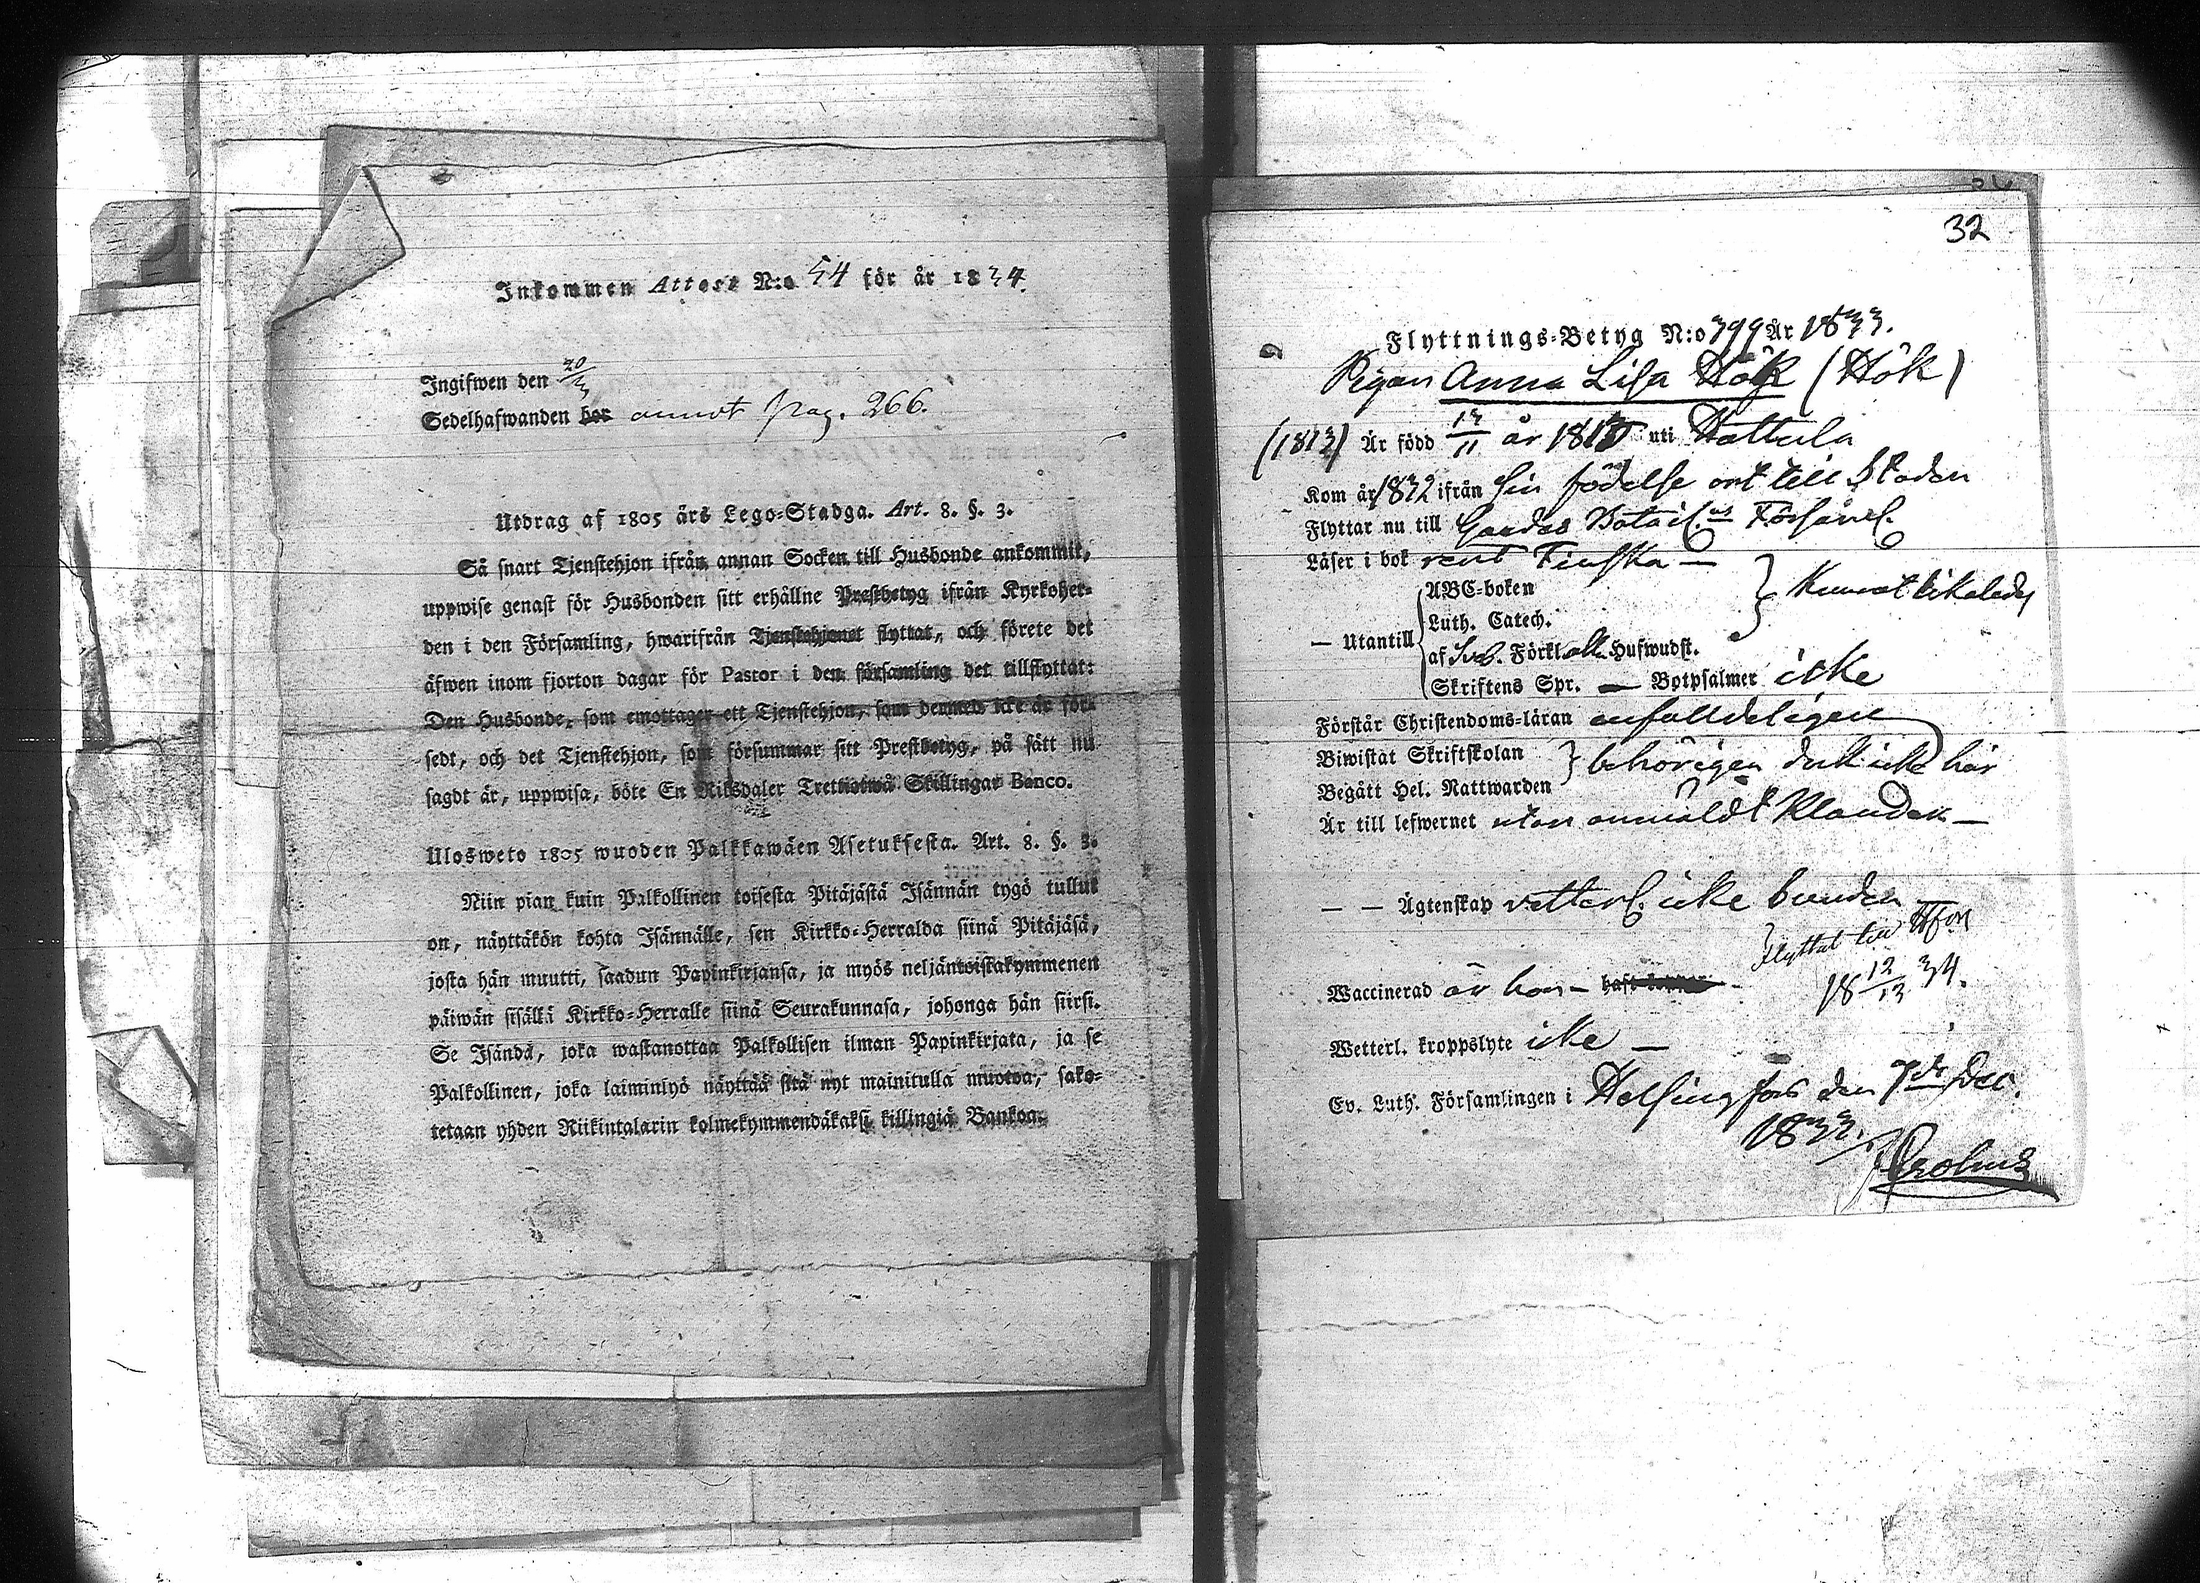 Inkommen Attest N:o 54 för år 1834.
Ingifwen den 20/3
Sedelhafwanden bor annot pag. 266.
Utdrag af 1805 års Lego-Stadga. Art. 8. §. 3.
Så snart Tjenstehjon ifrån annan Socken till Husbonde ankommit,
uppwise genast för Husbonden sitt erhållne Prestbetyg ifrån Kyrkoher-
den i den Församling, hwarifrån Tjenstehjonet flyttat, och förete det
äfwen inom fjorton dagar för Pastor i den församling det tillflyttat:
Den Husbonde, som emottager ett Tjenstehjon, som dermed icke är för-
sedt, och det Tjenstehjon, som försummar sitt Prestbetyg, på sätt nu
sagdt är, uppwisa, böte En Riksdaler Trettiotwå Skillingar Banco.
Ulosweto 1805 wuoden Palkkawäen Asetuksesta. Art. 8. §. 3.
Niin pian kuin Palkollinen toisesta Pitäjästä Isännän tygö tullut
on, näyttäkön kohta Isännälle, sen Kirkko-Herralda siinä Pitäjäsä,
josta hän muutti, saadun Papinkirjansa, ja myös neljäntoistakymmenen
päiwän sisällä Kirkko-Herralle siinä Seurakunnasa, johonga hän siirsi.
Se Isändä, joka wastanottaa Palkollisen ilman Papinkirjata, ja se
Palkollinen, joka laiminlyö näyttää sitä nyt mainitulla muotoa, sako-
tetaan yhden Riikintalarin kolmekymmendäkaksi killingiä Bankoa.
32
Flyttnings-Betyg N:o 399 År 1833.
Pigan Anna Lisa Hök (Hök)
(1813) Är född 13/11 år 1813 uti Hattula
Kom år 1832 ifrån sin födelse ort till Staden
Flyttar nu till Gardes Batail.ns Församl.
Läser i bok rent Finska —
ABC-boken
Luth. Catech.
— Utantill af Sveb. Förkl. alla Hufwudst. } Kunnat likaledes
Skriftens Spr. — Botpsalmer icke
Förstår Christendoms-läran enfalldeligen
Biwistat Skriftskolan
Begått Hel. Nattwarden } behörigen dock icke här
Är till lefwernet utan anmäldt klander —
— — Ägtenskap vetterl. icke bunden
Flyttat till Hfors
18 12/12 34.
Waccinerad är hon —
Wetterl. kroppslyte icke —
Ev. Luth. Församlingen i Helsingfors den 7de Dec.
1833.